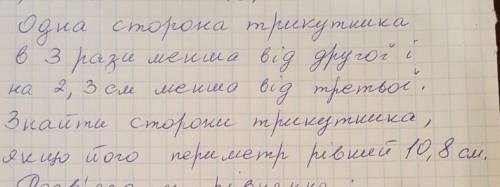 Одна сторона трикутника
в 3 рази менша від другої і
на 2,3 см менша від третьої.
Знайти сторони трикутника,
якщо його периметр рівний 10,8 см.